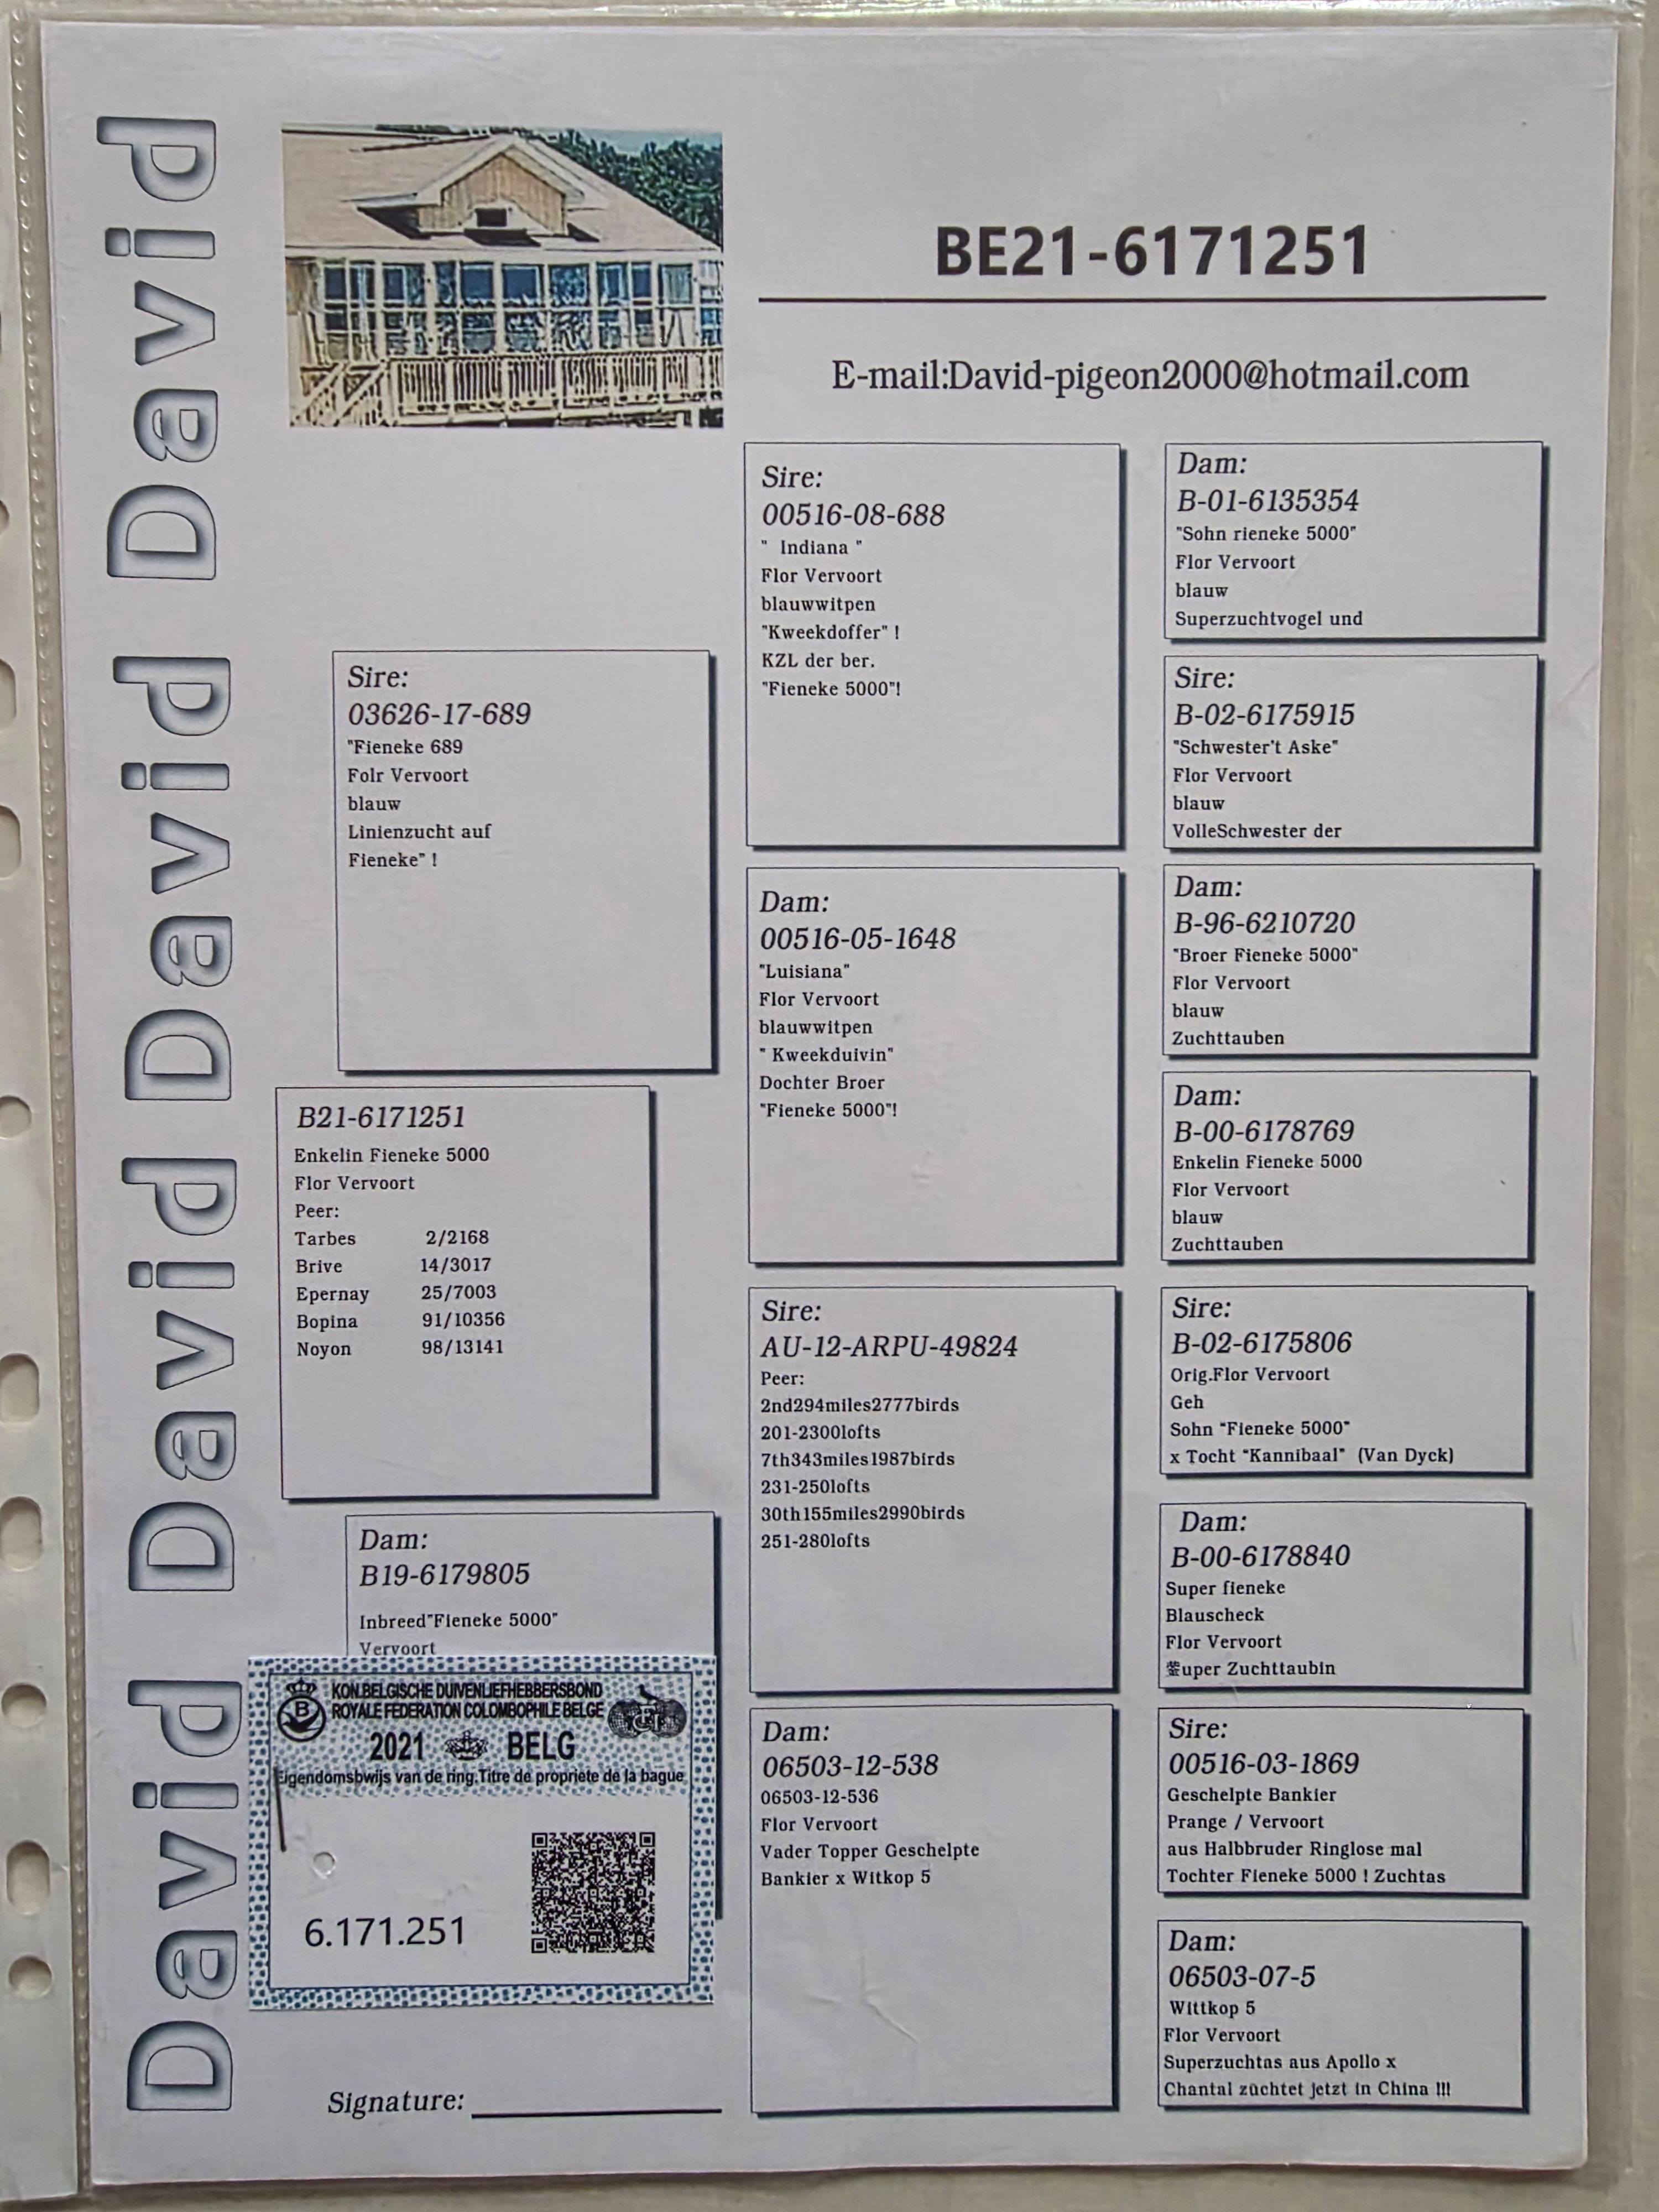 David David David David
BE21-6171251
E-mail:David-pigeon2000@hotmail.com
Sire:
03626-17-689
"Fieneke 689
Folr Vervoort
blauw
Linienzucht auf
Fieneke" !
B21-6171251
Enkelin Fieneke 5000
Flor Vervoort
Peer:
Tarbes 2/2168
Brive 14/3017
Epernay 25/7003
Bopina 91/10356
Noyon 98/13141
Dam:
B19-6179805
Inbreed"Fieneke 5000"
Vervoort
KON.BELGISCHE DUIVENLIEFHEBBERSBOND
ROYALE FEDERATION COLOMBOPHILE BELGE
2021 BELG
Eigendomsbwijs van de ring.Titre de propriete de la bague
6.171.251
Signature:
Sire:
00516-08-688
" Indiana "
Flor Vervoort
blauwwitpen
"Kweekdoffer" !
KZL der ber.
"Fieneke 5000"!
Dam:
00516-05-1648
"Luisiana"
Flor Vervoort
blauwwitpen
" Kweekduivin"
Dochter Broer
"Fieneke 5000"!
Sire:
AU-12-ARPU-49824
Peer:
2nd294miles2777birds
201-2300lofts
7th343miles1987birds
231-250lofts
30th155miles2990birds
251-280lofts
Dam:
06503-12-538
06503-12-536
Flor Vervoort
Vader Topper Geschelpte
Bankier x Witkop 5
Dam:
B-01-6135354
"Sohn rieneke 5000"
Flor Vervoort
blauw
Superzuchtvogel und
Sire:
B-02-6175915
"Schwester't Aske"
Flor Vervoort
blauw
VolleSchwester der
Dam:
B-96-6210720
"Broer Fieneke 5000"
Flor Vervoort
blauw
Zuchttauben
Dam:
B-00-6178769
Enkelin Fieneke 5000
Flor Vervoort
blauw
Zuchttauben
Sire:
B-02-6175806
Orig.Flor Vervoort
Geh
Sohn "Fieneke 5000"
x Tocht "Kannibaal" (Van Dyck)
Dam:
B-00-6178840
Super fieneke
Blauscheck
Flor Vervoort
Zuchttaubin
Sire:
00516-03-1869
Geschelpte Bankier
Prange / Vervoort
aus Halbbruder Ringlose mal
Tochter Fieneke 5000 ! Zuchtas
Dam:
06503-07-5
Wittkop 5
Flor Vervoort
Superzuchtas aus Apollo x
Chantal züchtet jetzt in China !!!